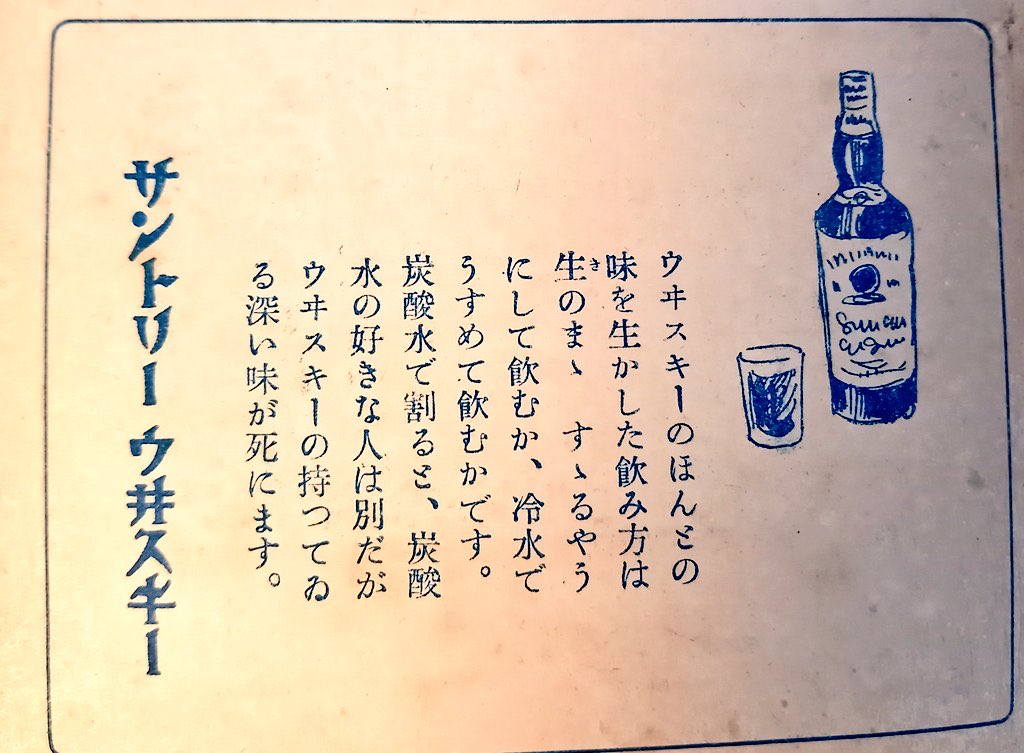 ウヰスキーのほんとの
味を生かした飲み方は
生きのまゝ すゝるやう
にして飲むか、冷水で
うすめて飲むかです。
炭酸水で割ると、炭酸
水の好きな人は別だが
ウヰスキーの持つてゐ
る深い味が死にます。
サントリー ウ井スキー